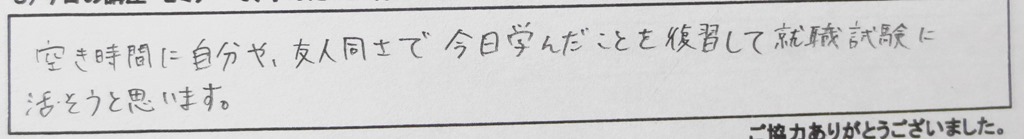 空き時間に自分や、友人同士で今日学んだことを復習して就職試験に
活そうと思います。
ご協力ありがとうございました。